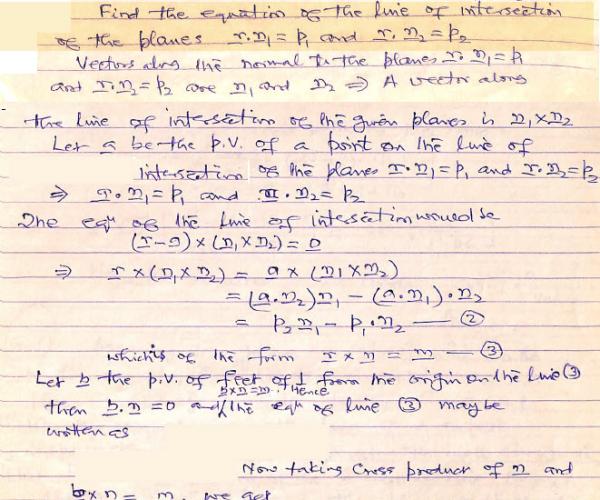 Find the equation of the line of intersection
of the planes r.n1 = p1 and r.n2 = p2
Vectors along the normal to the planes r.n1 = p1
and r.n2 = p2 are n1 and n2 ⇒ A vector along
the line of intersection of the given planes is n1 × n2
Let a be the p.v. of a point on the line of
intersection of the planes r.n1 = p1 and r.n2 = p2
⇒ a.n1 = p1 and a.n2 = p2
The eqn of the line of intersection would be
(r - a) × (n1 × n2) = 0
⇒ r × (n1 × n2) = a × (n1 × n2)
= (a.n2)n1 - (a.n1).n2
= p2 n1 - p1.n2 — ②
which is of the form r × n = m — ③
Let b the p.v. of feet of ⊥ from the origin on the line ③
b×n=m. Hence
then b.n = 0 and the eqn of line ③ may be
written as
Now taking cross product of n and
b × n = m, we get